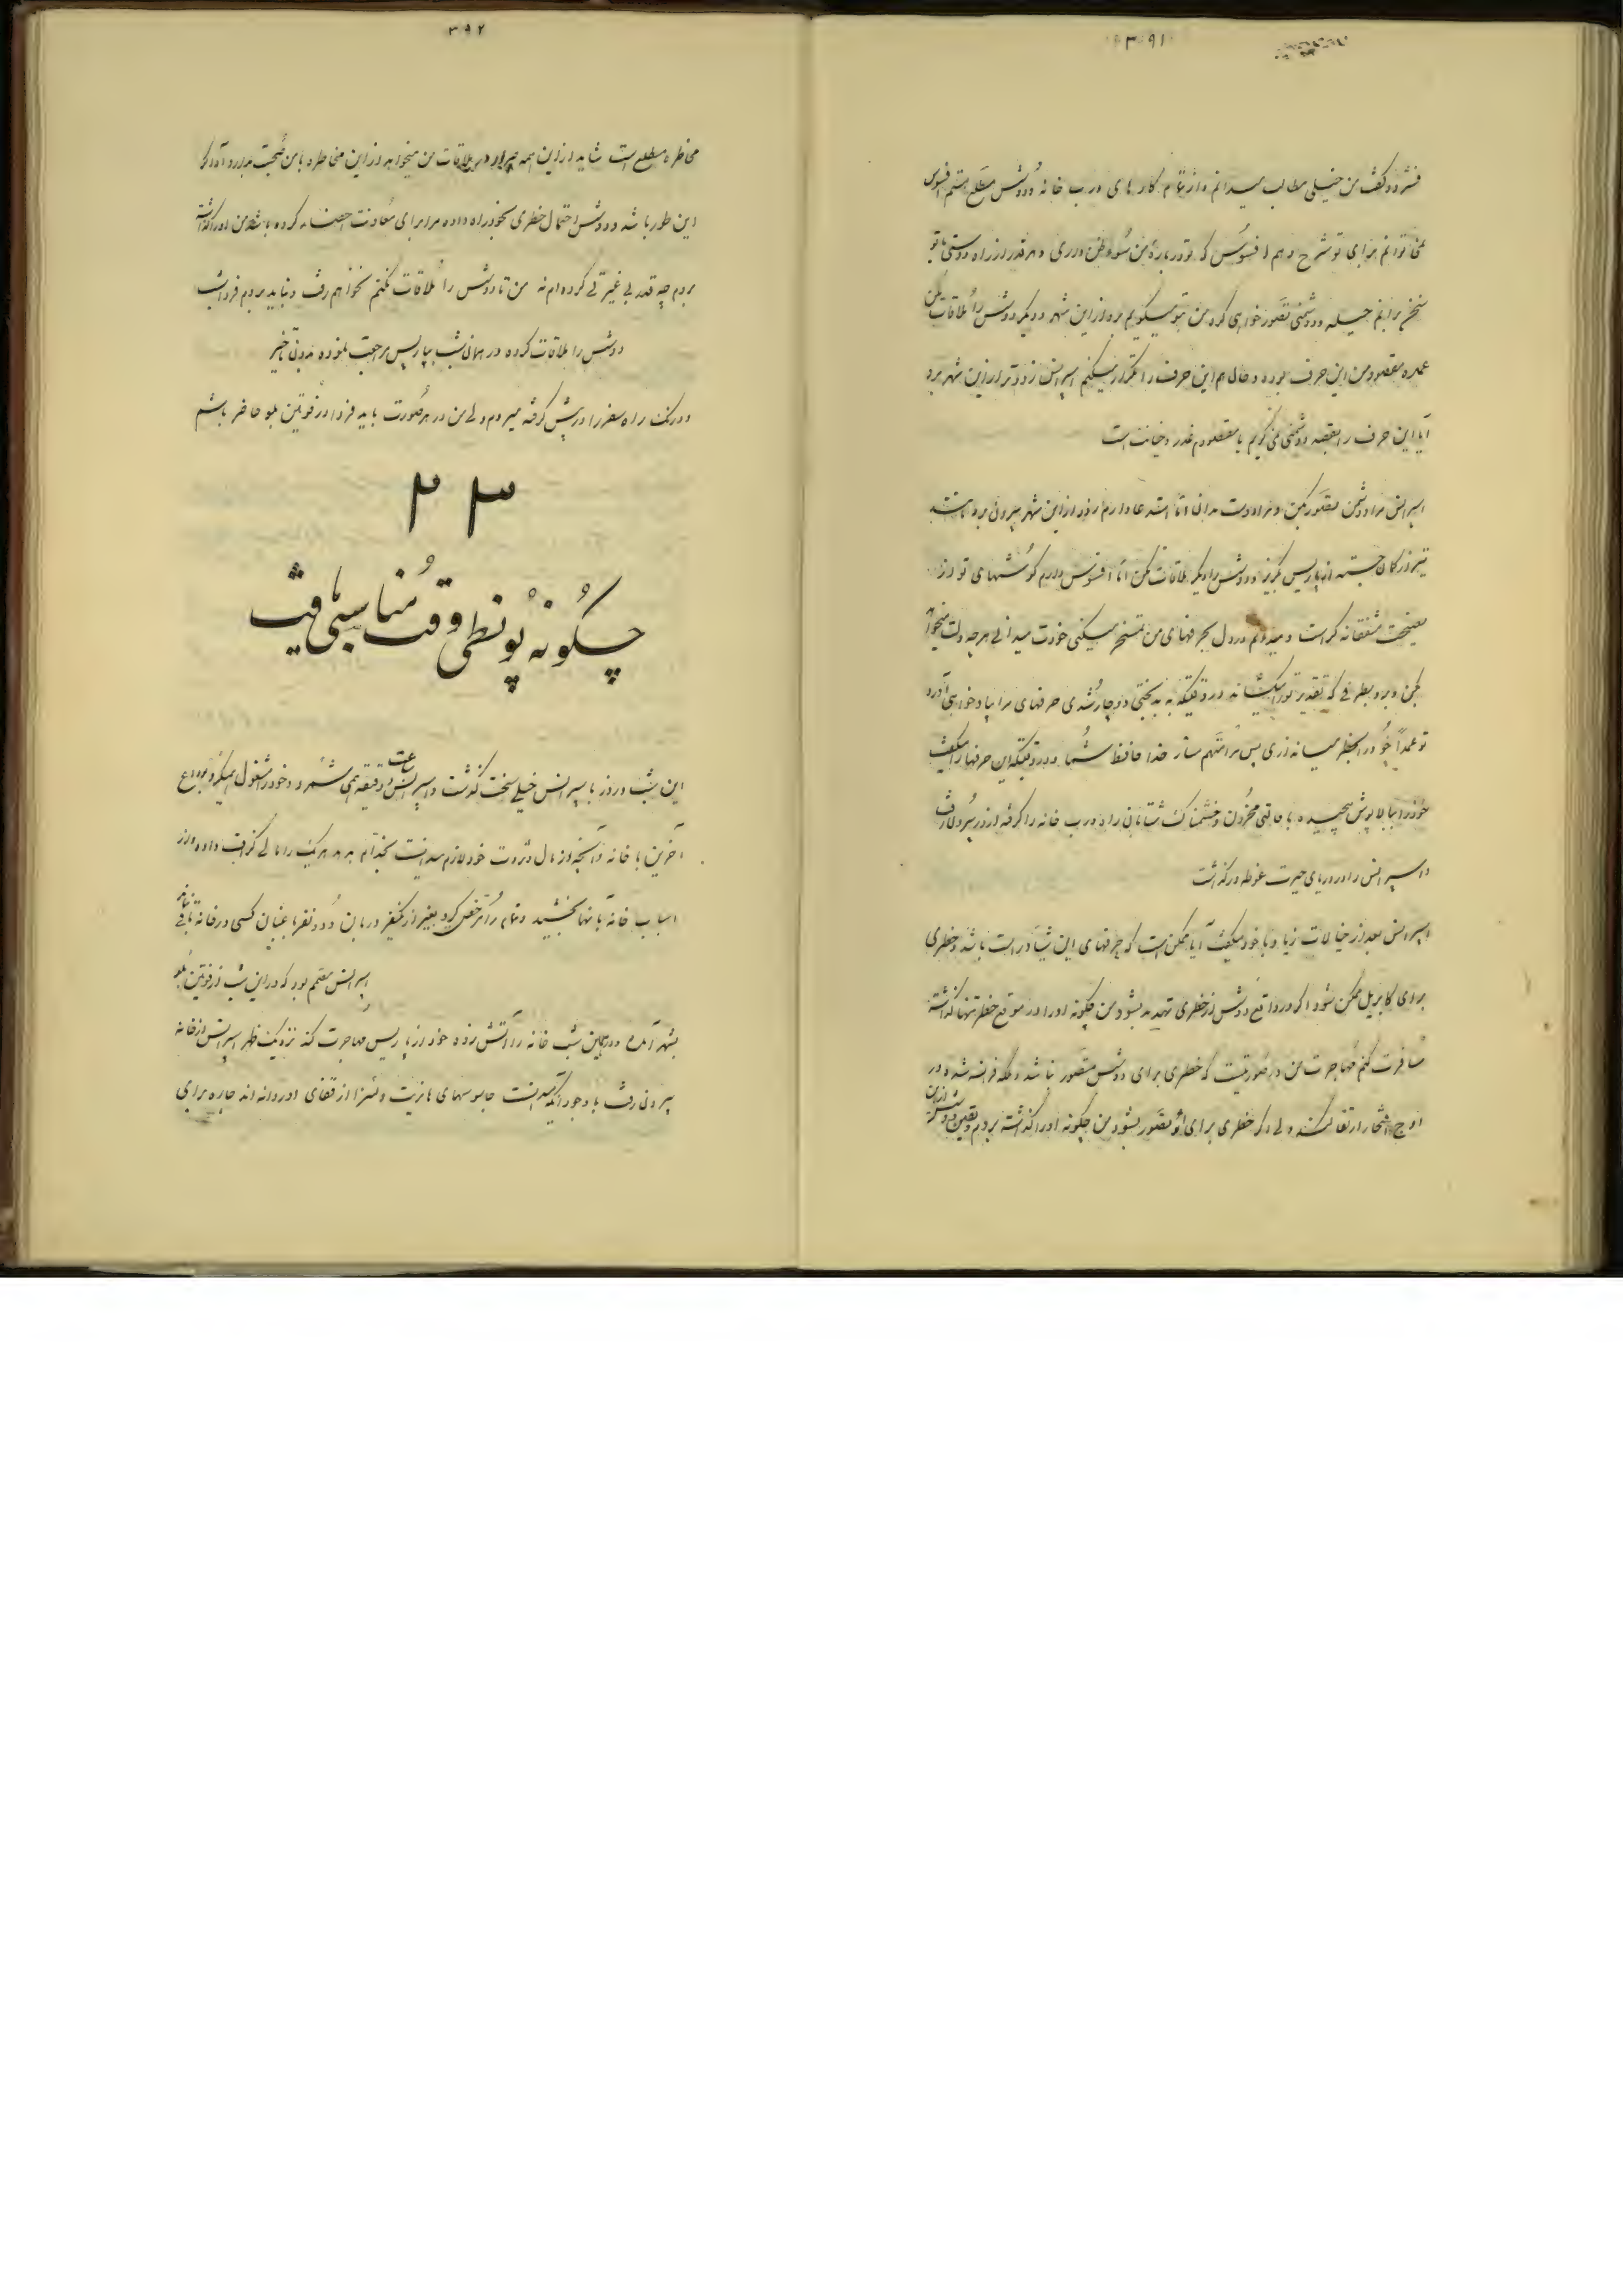 ۳۹۱
فشرد و گفت من خیلی مطالب میدانم و از تمام کارهای درب خانه دوشس مطلع هستم افسوس
نمی توانم برای تو شرح دهم افسوس که تو درباره من سوءظن داری و هر قدر از راه دوستی با تو
سخن برانم حیله و دشمنی تصور خواهی کرد من بتو میگویم برو از این شهر و دیگر دوشس را ملاقات مکن
عمده مقصود من این حرف بود و حال هم این حرف را تکرار میکنم اسپرانس زودتر از این شهر برو
آیا این حرف را بقصد دشمنی می گویم یا مقصودم غدر و خیانت است
اسپرانس مرا دشمن تصور کن و نه دوست بدان اما استدعا دارم زود از این شهر بیرون برو مانند
تیر از کمان جسته از پاریس بگریز و دوشس را دیگر ملاقات مکن اما افسوس دارم گوشهای تو از
نصیحت مشفقانه کر است و میدانم در دل بحرفهای من تمسخر میکنی خودت میدانی هر چه دلت میخواهد
بکن و برو بطرفی که تقدیر تو را میکشاند در وقتیکه به بدبختی دوچار شدی حرفهای مرا بیاد خواهی آورد
تو عمداً خود را بخطر میاندازی پس مرا متهم مساز خدا حافظ شما و در وقتیکه این حرفها را میگفت
خود را ببالاپوش پیچیده با حالتی محزون و خشمناک شتابان راه درب خانه را گرفته از در بیرون رفت
و اسپرانس را در دریای حیرت غوطه ور گذاشت
اسپرانس بعد از خیالات زیاد با خود میگفت آیا ممکن است که حرفهای این شیاد راست باشد و خطری
برای گابریل ممکن شود اگر در واقع دوشس از خطری تهدید بشود من چگونه او را در موقع خطر تنها گذاشته
مسافرت کنم مهاجرت من در صورتیست که خطری برای دوشس متصور نباشد و ملکه فرانسه شده در
اوج افتخار ارتقا کند ولی اگر خطری برای او تصور بشود من چگونه او را گذاشته بروم و یقین دوشس از این
۳۹۲
مخاطره مطلع است شاید از این همه اصرار در ملاقات من میخواهد از این مخاطره با من صحبت بدارد آه اگر
این طور باشد و دوشس احتمال خطری بخود راه داده مرا برای معاونت احضار کرده باشد من او را گذاشته
بروم چه قدر بی غیرتی کرده ام نه من تا دوشس را ملاقات نکنم نخواهم رفت و نباید بروم فردا شب
دوشس را ملاقات کرده در همان شب بپاریس مراجعت نموده بدون تاخیر
و درنگ راه سفر را در پیش گرفته میروم ولی من در هر صورت باید فردا در فونتن بلو حاضر باشم
۲۳
چگونه پونطی وقت مناسبی یافت
این شب و روز با اسپرانس خیلی سخت گذشت و اسپرانس ساعت و دقیقه می شمرد و خود را مشغول میکرد بوداع
آخرین با خانه و آنچه از مال و ثروت خود لازم میدانست بخدام بدهد هر یک را مالی گزاف داده و از
اسباب خانه بآنها بخشید و تمام را مرخص کرد بغیر از یکنفر دربان و دو نفر باغبان کسی در خانه باقی نماند
اسپرانس مصمم بود که در این شب از فونتن بلو
بشهر آمده در همین شب خانه را آتش زده خود از پاریس مهاجرت کند نزدیک ظهر اسپرانس از خانه
بیرون رفت با وجود آنکه میدانست جاسوسهای هانریت و لئنرا از قفای او روانه اند چاره برای